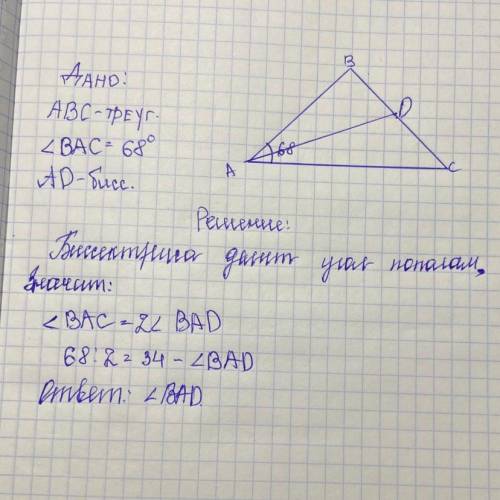 Дано:
ABC-треуг.
∠BAC = 68°
AD-бисс.
B
D
68
A
C
Решение:
Биссектриса делит угол пополам,
значит:
∠BAC = 2∠ BAD
68:2 = 34 - ∠BAD
Ответ: ∠BAD.